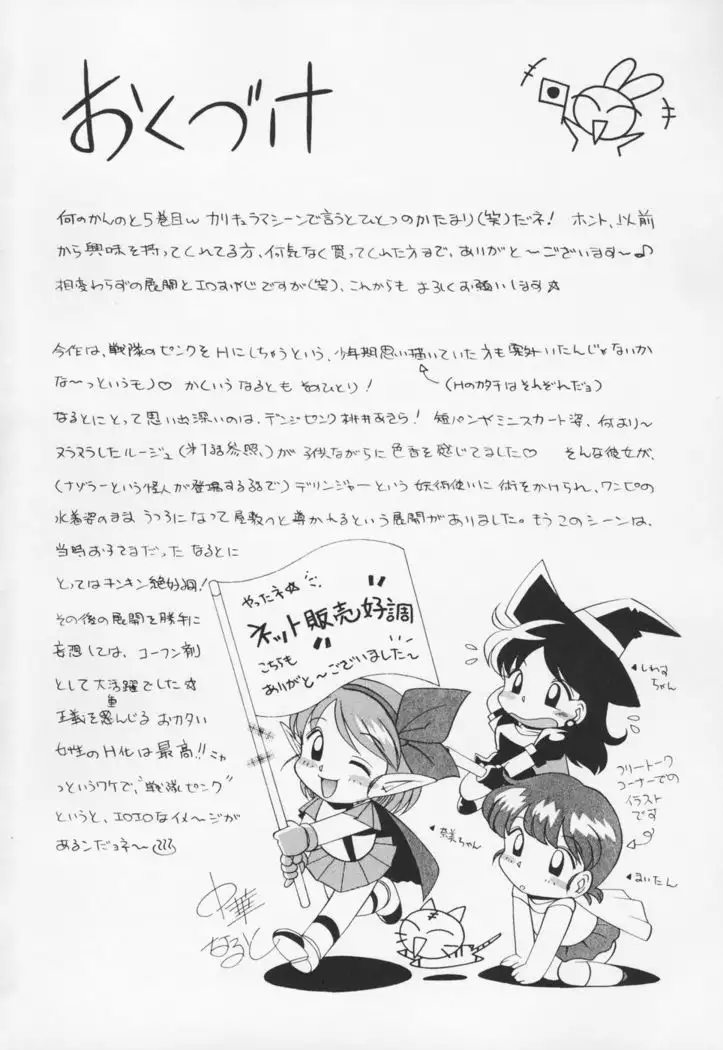 おくづけ
何のかんのと5巻目w カリキュラマシーンで言うとひとつのかたまり(笑)だネ! ホント、以前
から興味を持ってくれてる方、何気なく買ってくれた方まで、ありがと〜ございます〜♪
相変わらずの展開とエロオヤジですが(笑)、これからも よろしくお願いします☆
今作は、戦隊のピンクをHにしちゃうという、少年期思い描いていた方も案外いたんじゃないか
な〜っというモノ♡ かくいう なるとも そのひとり!
(Hのカタチはそれぞれだョ)
なるとにとって思い出深いのは、デンジピンク 桃井あきら! 短パンやミニスカート姿、何より〜
ヌラヌラしたルージュ(第1話参照、)が子供ながらに色香を感じてました♡ そんな彼女が、
(ナゾラーという怪人が登場する話で)デリンジャーという妖術使いに術をかけられ、ワンピの
水着姿のまま うつろになって屋敷へと導かれるという展開がありました。もうこのシーンは、
当時お子さまだった なるとに
とってはチンチン絶好調!
その後の展開を勝手に
妄想しては、コーフン剤
として大活躍でした☆
正義を重んじる おカタい
女性のH化は最高!!
っというワケで、"戦隊ピンク"
というと、エロエロなイメ〜ジが
あるンだョネ〜
やったネ☆
"ネット販売好調"
こちらも
ありがと〜ございました〜
◀しわすちゃん
フリートーク
コーナーでの
イラスト
です
◀奈美ちゃん
◀まいたん
中華
なると